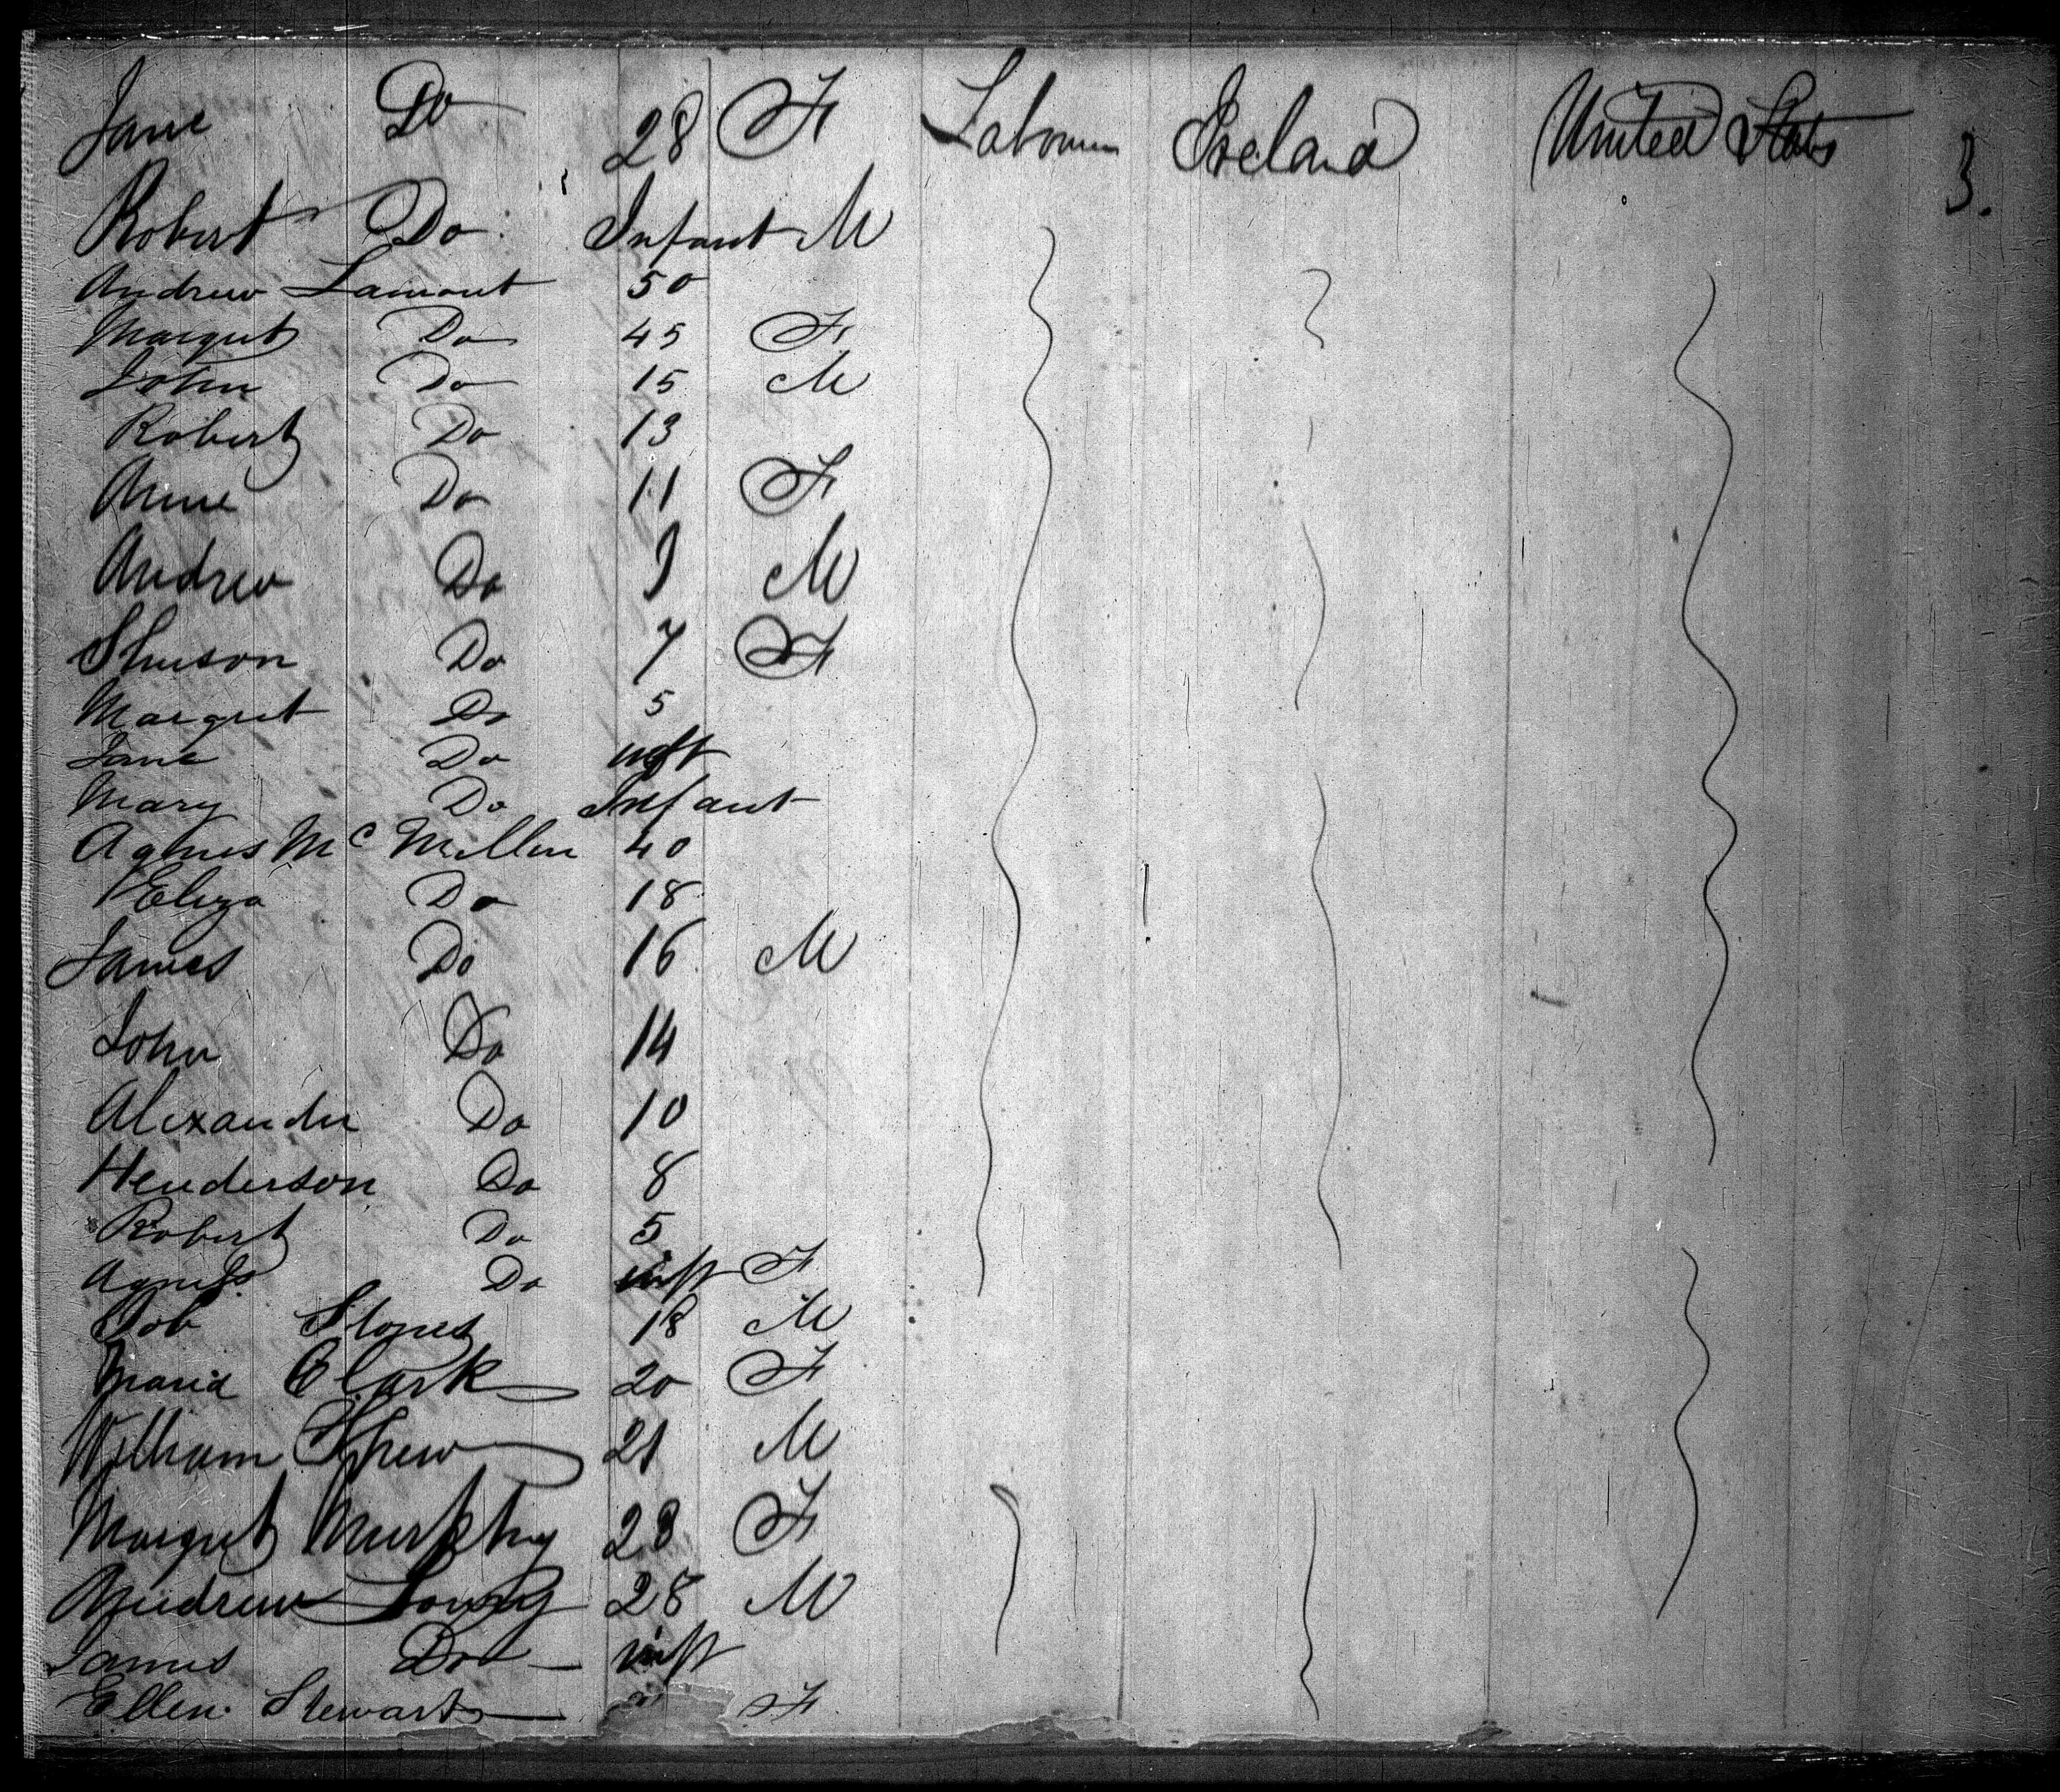 Jane Do 28 F Labourer Ireland United States
3.
Robert Do Infant M
Andrew Lamont 50
Margret Do 45 F
John Do 15 M
Robert Do 13
Anne Do 11 F
Andrew Do 9 M
Do 7 F
Margret Do 5
Jane Do inft
Mary Do Infant
Agnes Mc Millen 40
Eliza Do 18
James Do 16 M
John Do 14
Alexander Do 10
Henderson Do 8
Robert Do 5
Agness Do inft F
18 M
Maria Clark 20 F
William 21 M
Margret Murphy 28 F
Andrew Lowry 28 M
James Do inft
Ellen Stewart F